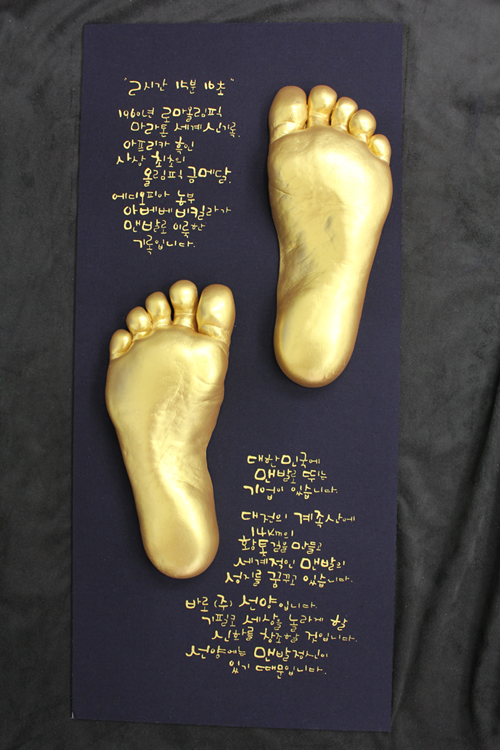 "2시간 15분 16초"
1960년 로마올림픽
마라톤 세계신기록.
아프리카 흑인
사상 최초의
올림픽 금메달.
에디오피아 농부
아베베 비킬라가
맨발로 이룩한
기록입니다.
대한민국에
맨발로 뛰는
기업이 있습니다.
대전의 계족산에
14km의
황토길을 만들고
세계적인 맨발의
성지를 꿈꾸고 있습니다.
바로 (주) 선양입니다.
기필코 세상을 놀라게 할
신화를 창조할 것입니다.
선양에는 맨발정신이
있기 때문입니다.